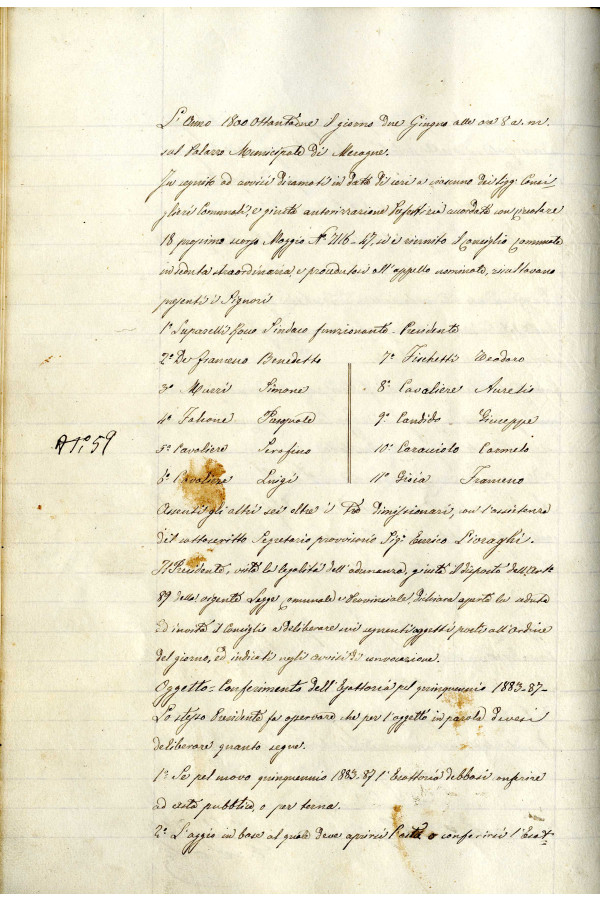 L'Anno 1800 Ottantadue il giorno due Giugno alle ore 8 a. m.
sul Palazzo Municipale di Mesagne.
In seguito ad avvisi diramati in data di ieri a ciascuno dei Sigg: Consi
glieri Comunali, e giusta autorizzazione Prefettizia accordata con circolare
18 prossimo scorso Maggio N° 216-47, si è riunito il Consiglio Comunale
in seduta straordinaria, e procedutosi all'appello nominale, risultavano
presenti i Signori
1° Suparelli Rocco Sindaco funzionante-Presidente
2° De Franceso Benedetto
7° Fischetti Teodoro
3° Murri Simone
8° Cavaliere Aurelio
4° Falcone Pasquale
9° Candido Giuseppe
N° 59
5° Cavaliere Serafino
10° Caracciolo Carmelo
6° Cavaliere Luigi
11° Gioia Franceso
Assenti gli altri sei oltre i Tre Dimissionari, coll'assistenza
del sottoscritto Segretario provvisorio Sig: Enrico Pioraghi.
Il Presidente, vista la legalità dell'adunanza, giusta il disposto dell'Art:
89 della vigente Legge Comunale e Provinciale, dichiara aperta la seduta
ed invita il Consiglio a deliberare sui seguenti oggetti posti all'Ordine
del giorno, ed indicati negli avvisi di convocazione.
Oggetto-Conferimento dell'Esattoria pel quinquennio 1883-87-
Lo stesso Presidente fa osservare che per l'oggetto in parola devesi
deliberare quanto segue.
1° Se pel nuovo quinquennio 1883-87 l'Esattoria debbasi conferire
ad asta pubblica, o per terna.
2° L'aggio in base al quale deve aprirsi l'asta o conferirsi l'Esatt